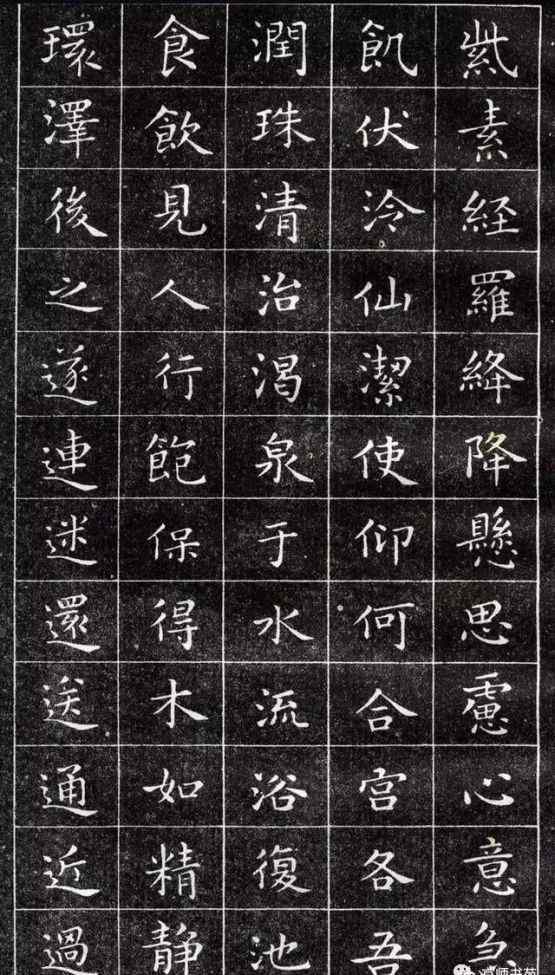 紫素経羅絳降懸思慮心意
飢伏泠仙潔使仰何合宫各吾
潤珠清治渴泉于水流浴復池
食飲見人行飽保得木如精静
環澤後之遂連迷還送通近過